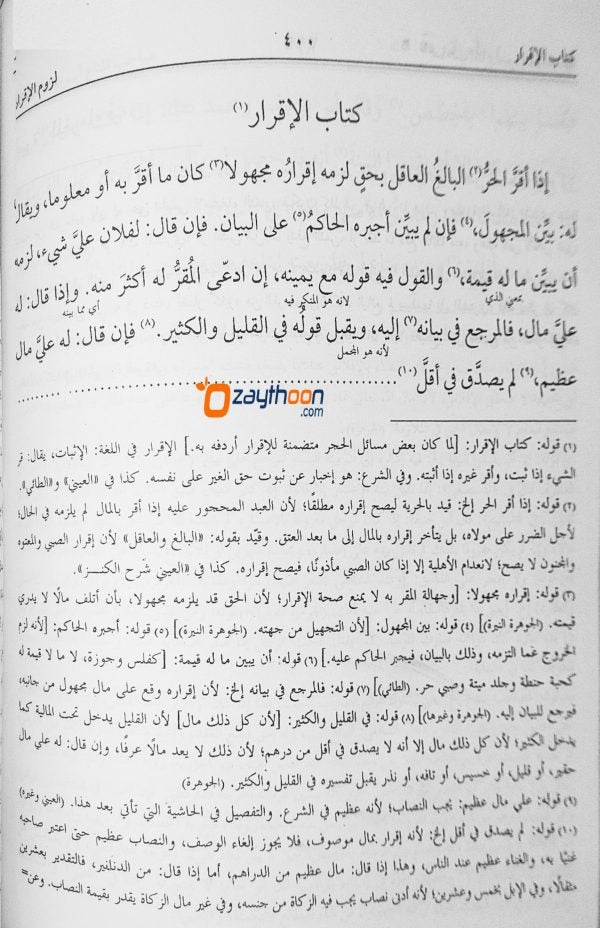 كتاب الإقرار ٤٠٠
لزوم الإقرار
كتاب الإقرار (١)
إذا أقرَّ الحرُّ (٢) البالغُ العاقل بحقٍ لزمه إقرارُه مجهولا (٣) كان ما أقرَّ به أو معلوما، ويقال
له: بيِّن المجهولَ، (٤) فإن لم يبيِّن أجبره الحاكمُ (٥) على البيان. فإن قال: لفلان عليَّ شيء، لزمه
أن يبيِّن ما له قيمة، (٦) والقول فيه قوله مع يمينه، إن ادعّى المُقرُّ له أكثرَ منه. وإذا قال: له
بمعنى الذي لأنه هو المنكر فيه أي مما بينه
عليَّ مال، فالمرجع في بيانه (٧) إليه، ويقبل قولُه في القليل والكثير. (٨) فإن قال: له عليَّ مال
لأنه هو المجمل
عظيم، (٩) لم يصدَّق في أقلَّ (١٠)
zaythoon
.com
(١) قوله: كتاب الإقرار: [لما كان بعض مسائل الحجر متضمنة للإقرار أردفه به.] الإقرار في اللغة: الإثبات، يقال: قر
الشيء إذا ثبت، وأقر غيره إذا أثبته. وفي الشرع: هو إخبار عن ثبوت حق الغير على نفسه. كذا في «العيني» و«الطائي».
(٢) قوله: إذا أقر الحر إلخ: قيد بالحرية ليصح إقراره مطلقًا؛ لأن العبد المحجور عليه إذا أقر بالمال لم يلزمه في الحال؛
لأجل الضرر على مولاه، بل يتأخر إقراره بالمال إلى ما بعد العتق. وقيّد بقوله: «البالغ والعاقل» لأن إقرار الصبي والمعتوه
والمجنون لا يصح؛ لانعدام الأهلية إلا إذا كان الصبي مأذونًا، فيصح إقراره. كذا في «العيني شَرح الكنـز».
(٣) قوله: إقراره مجهولا: [وجهالة المقر به لا يمنع صحة الإقرار؛ لأن الحق قد يلزمه مجهولا، بأن أتلف مالًا لا يدري
قيمته. (الجوهرة النيرة)] (٤) قوله: بين المجهول: [لأن التجهيل من جهته. (الجوهرة النيرة)] (٥) قوله: أجبره الحاكم: [لأنه لزم
الخروج عما التزمه، وذلك بالبيان، فيجبر الحاكم عليه.] (٦) قوله: أن يبين ما له قيمة: [كفلس وجوزة، لا ما لا قيمة له
كحبة حنطة وجلد ميتة وصبي حر. (الطائي)] (٧) قوله: فالمرجع في بيانه إلخ: لأن إقراره وقع على مال مجهول من جانبه،
فيرجع للبيان إليه. (الجوهرة وغيرها)] (٨) قوله: في القليل والكثير: [لأن كل ذلك مال] لأن القليل يدخل تحت المالية كما
يدخل الكثير؛ لأن كل ذلك مال إلا أنه لا يصدق في أقل من درهم؛ لأن ذلك لا يعد مالًا عرفًا، وإن قال: له علي مال
حقير، أو قليل، أو خسيس، أو تافه، أو نذر يقبل تفسيره في القليل والكثير. (الجوهرة)
(٩) قوله: علي مال عظيم: يجب النصاب؛ لأنه عظيم في الشرع. والتفصيل في الحاشية التي تأتي بعد هذا. (العيني وغيره)
(١٠) قوله: لم يصدق في أقل إلخ: لأنه إقرار بمال موصوف، فلا يجوز إلغاء الوصف، والنصاب عظيم حتى اعتبر صاحبه
غنيًا به، والغناء عظيم عند الناس، وهذا إذا قال: مال عظيم من الدراهم، أما إذا قال: من الدنانير، فالتقدير بعشرين
مثقالًا، وفي الإبل بخمس وعشرين؛ لأنه أدنى نصاب يجب فيه الزكاة من جنسه، وفي غير مال الزكاة يقدر بقيمة النصاب. وعن=